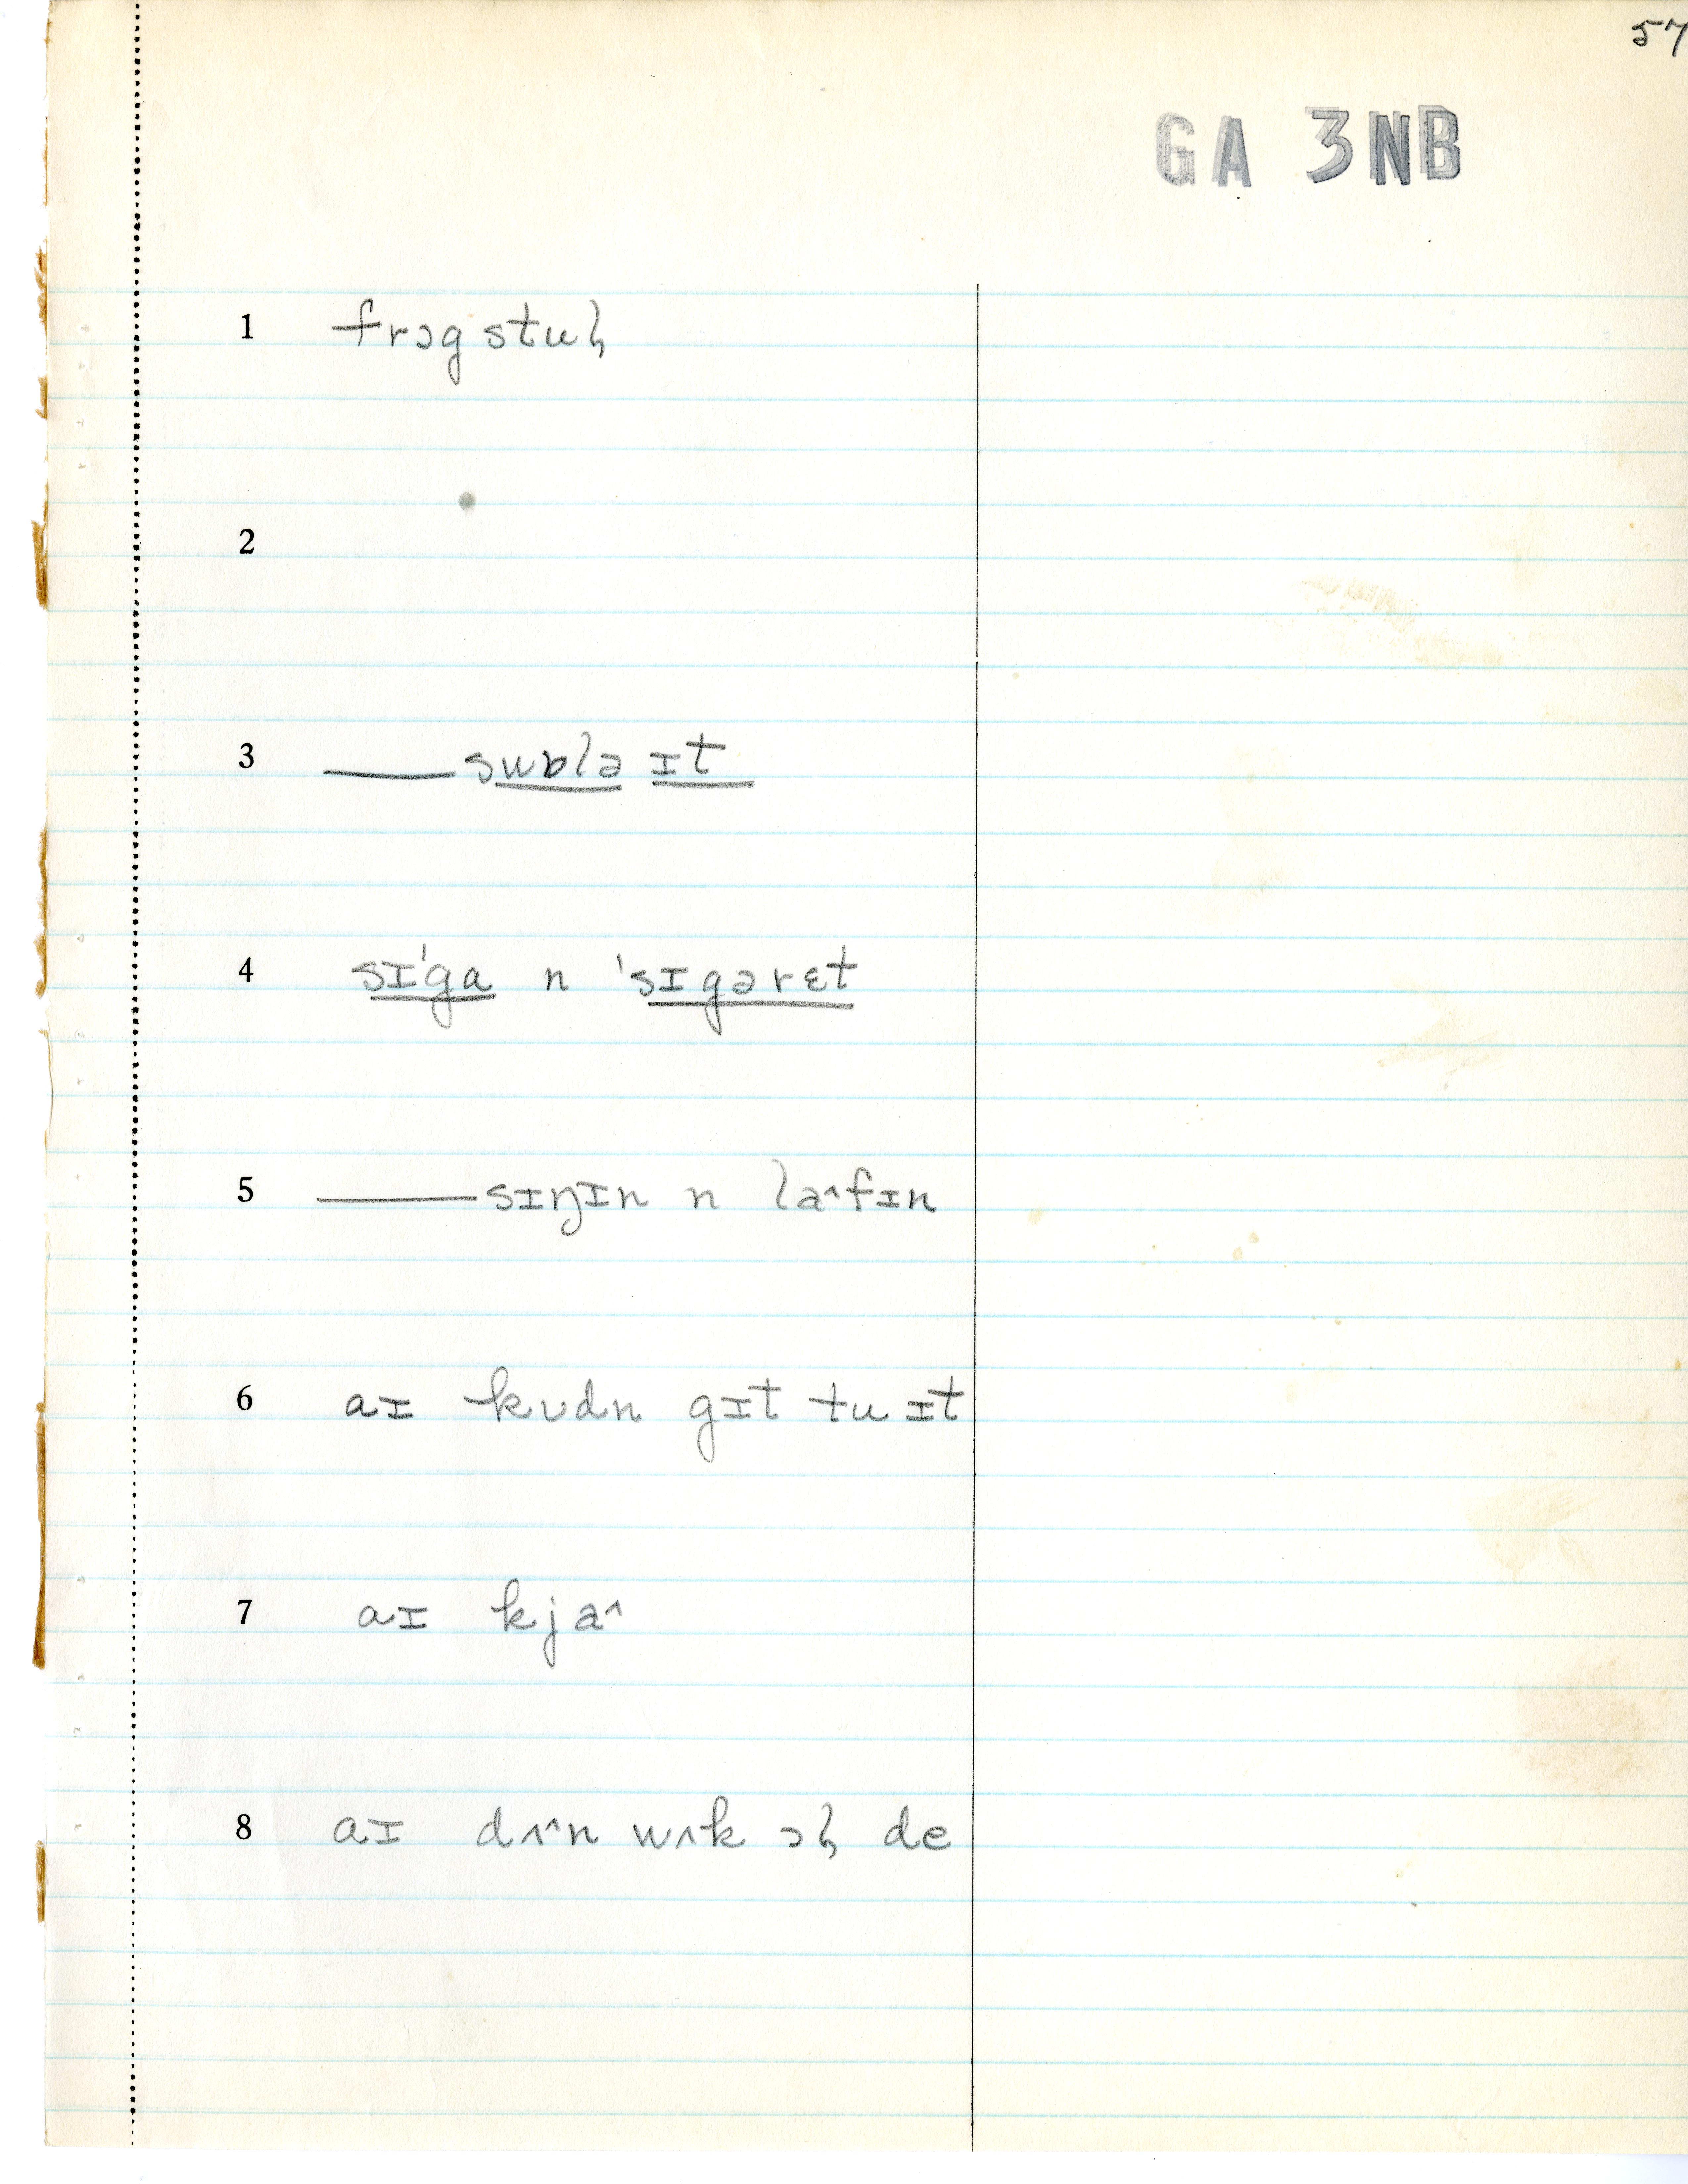 57
GA 3NB
1 frɔg stul̡
2
3 ——— sublə ɪt
4 sɪ'ga n 'sɪgərɛt
5 ——— sɪŋɪn n la^fɪn
6 aɪ kʊdn gɪt tu ɪt
7 aɪ kja^
8 aɪ dʌ^n wʌk ɔl̡ de